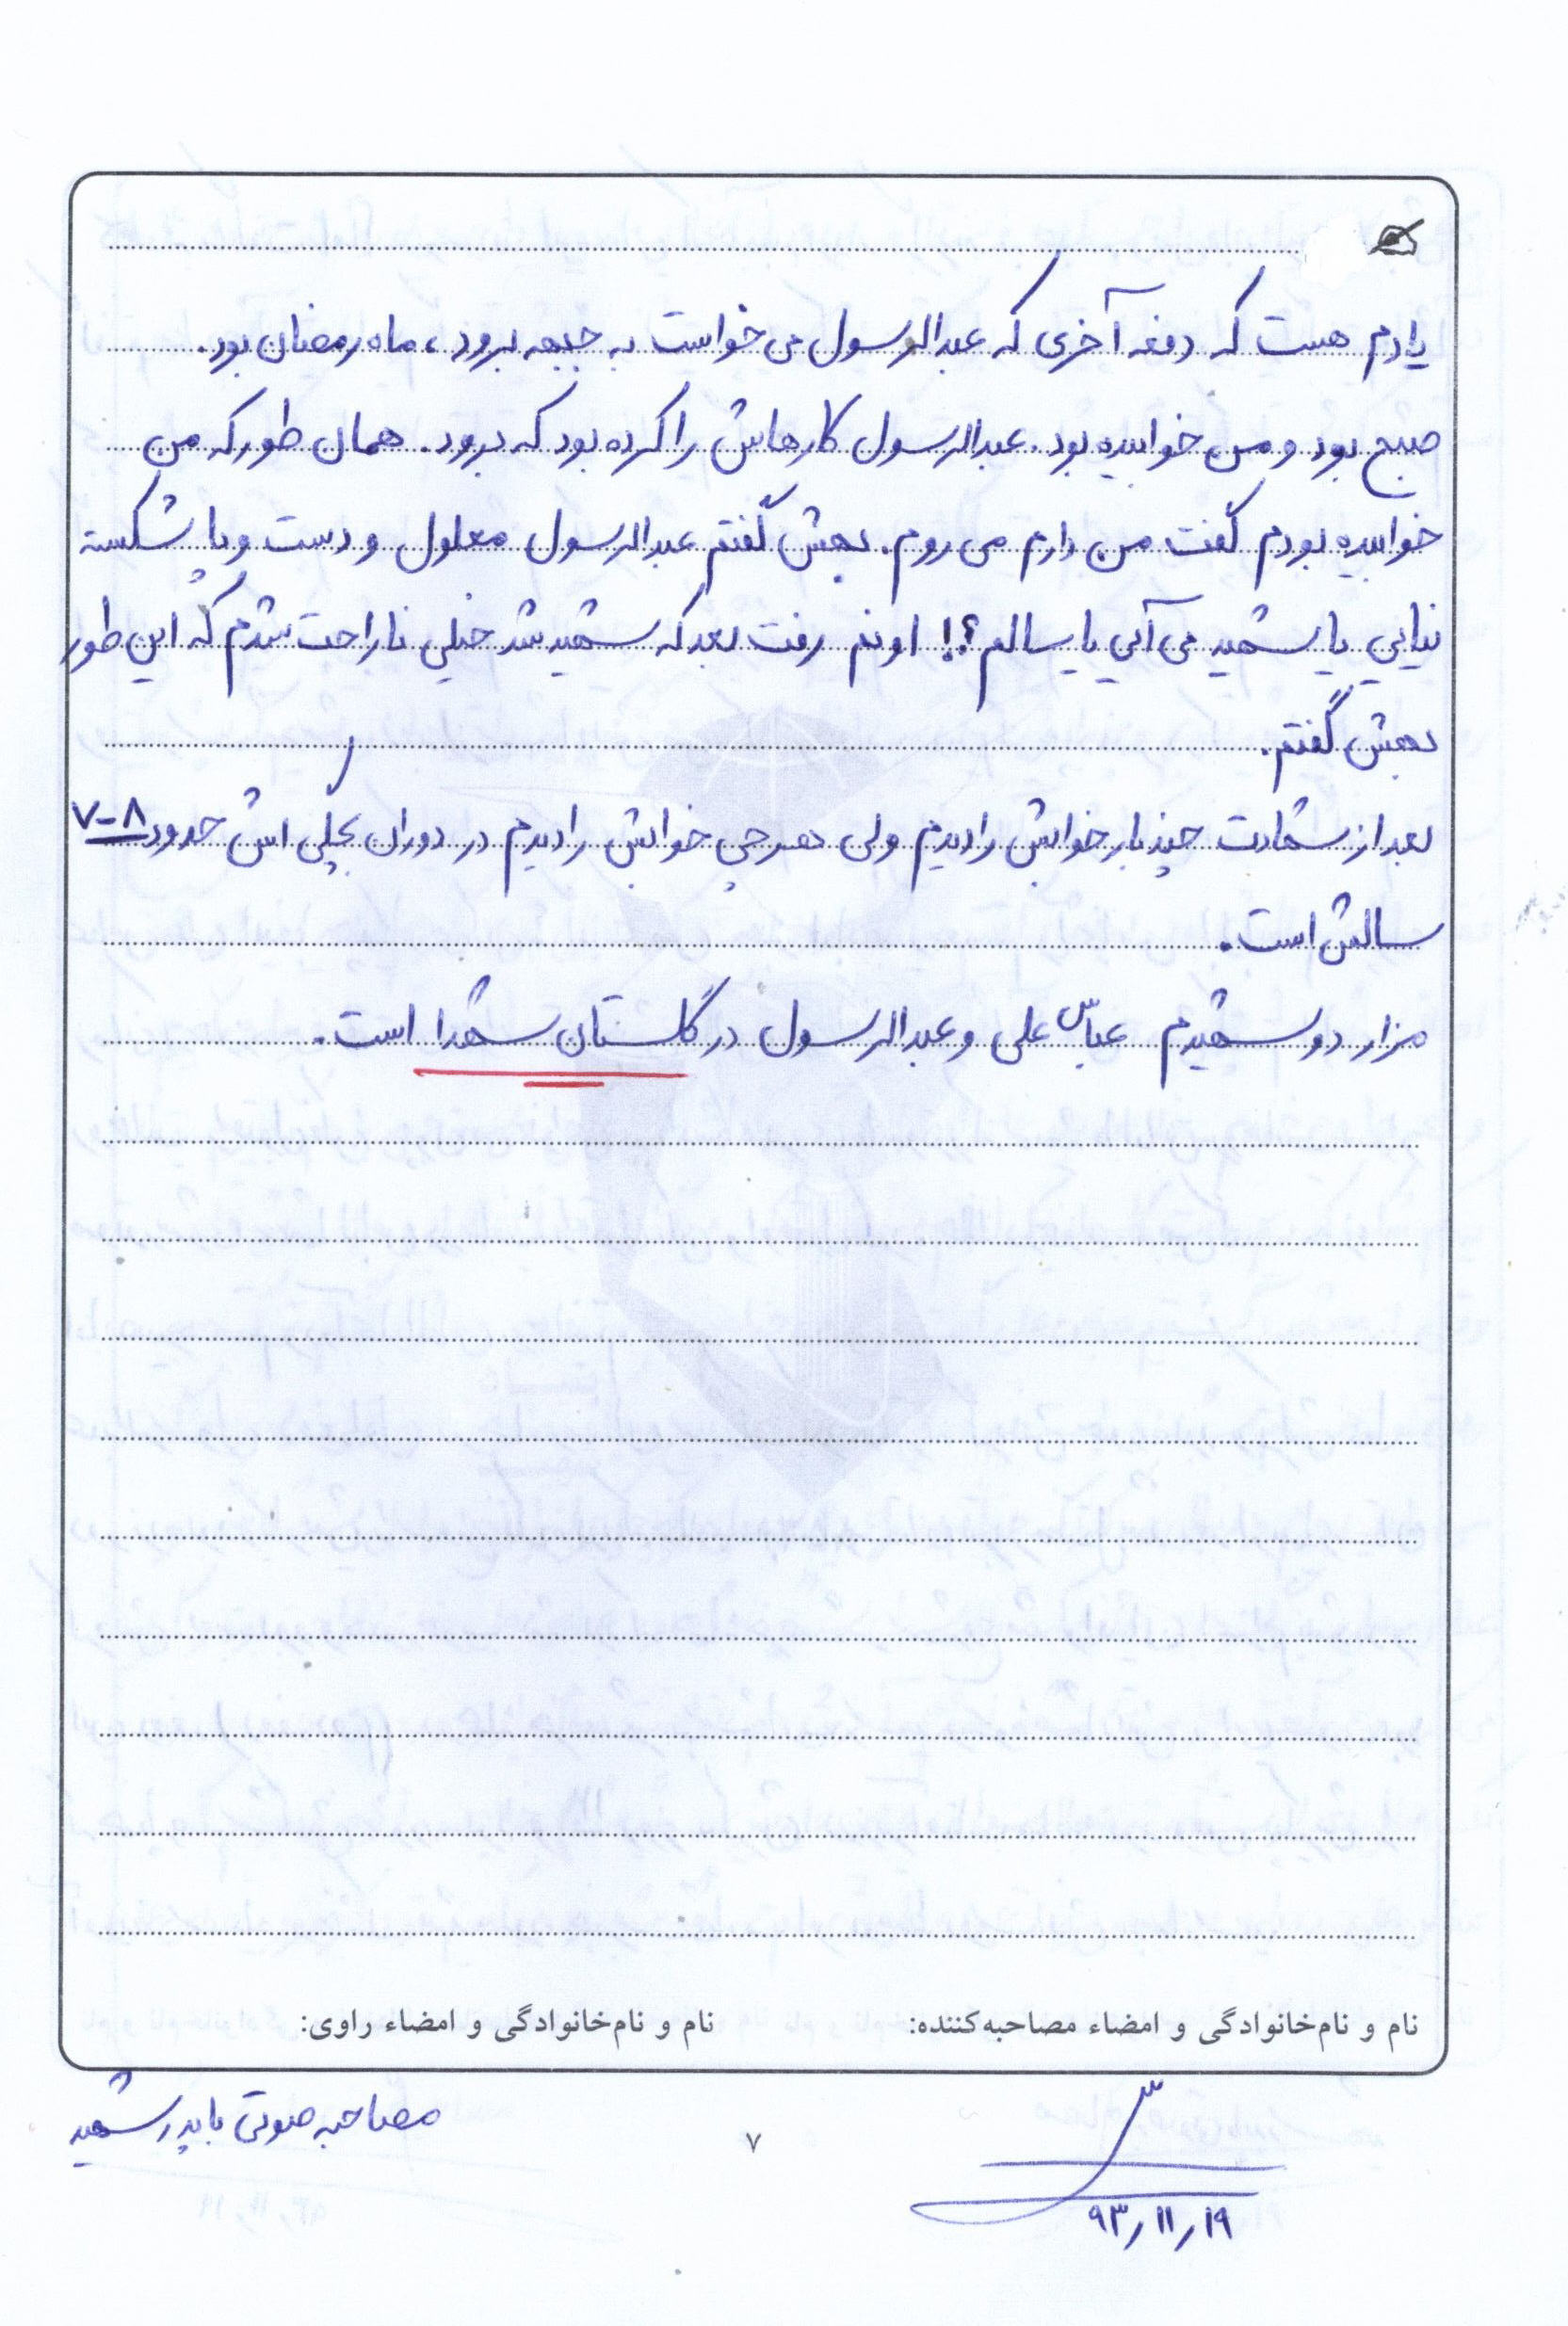 یادم هست که دفعه آخری که عبدالرسول می خواست به جبهه برود، ماه رمضان بود.
صبح بود و من خوابیده بود. عبدالرسول کارهایش را کرده بود که برود. همان طور که من
خوابیده بودم گفت من دارم می روم. بهش گفتم عبدالرسول معلول و دست و پا شکسته
نیایی یا شهید می آیی یا سالم؟! اونم رفت بعد که شهید شد خیلی ناراحت شدم که این طور
بهش گفتم.
بعد از شهادت چند بار خوابش را دیدم ولی هر چی خوابش را دیدم در دوران بچگی اش حدود ۸-۷
سالش است.
مزار دو شهیدم عباس علی و عبدالرسول در گلستان شهدا است.
نام و نام‌خانوادگی و امضاء مصاحبه‌کننده: نام و نام‌خانوادگی و امضاء راوی:
مصاحبه صوتی با پدر شهید
۷
۹۳/۱۱/۱۹